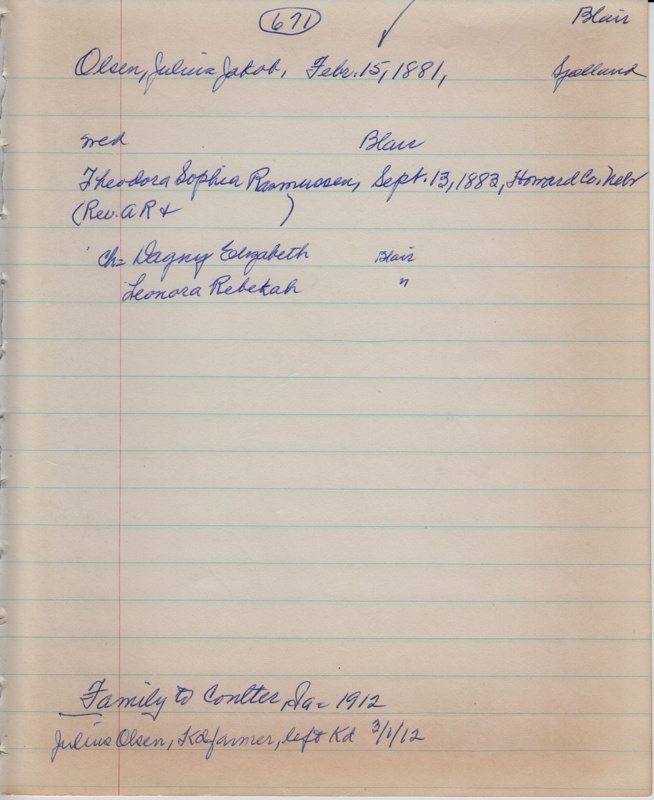 671
Blair
Olsen, Julius Jakob, Febr. 15, 1881, Sjælland
wed Blair
Theodora Sophia Rasmussen, Sept. 13, 1883, Howard Co, Nebr
(Rev. A R & )
Ch= Dagny Elizabeth Blair
Leonora Rebekah "
Family to Coulter, Ia = 1912
Julius Olsen, Kdfarmer, left Kd 3/1/12